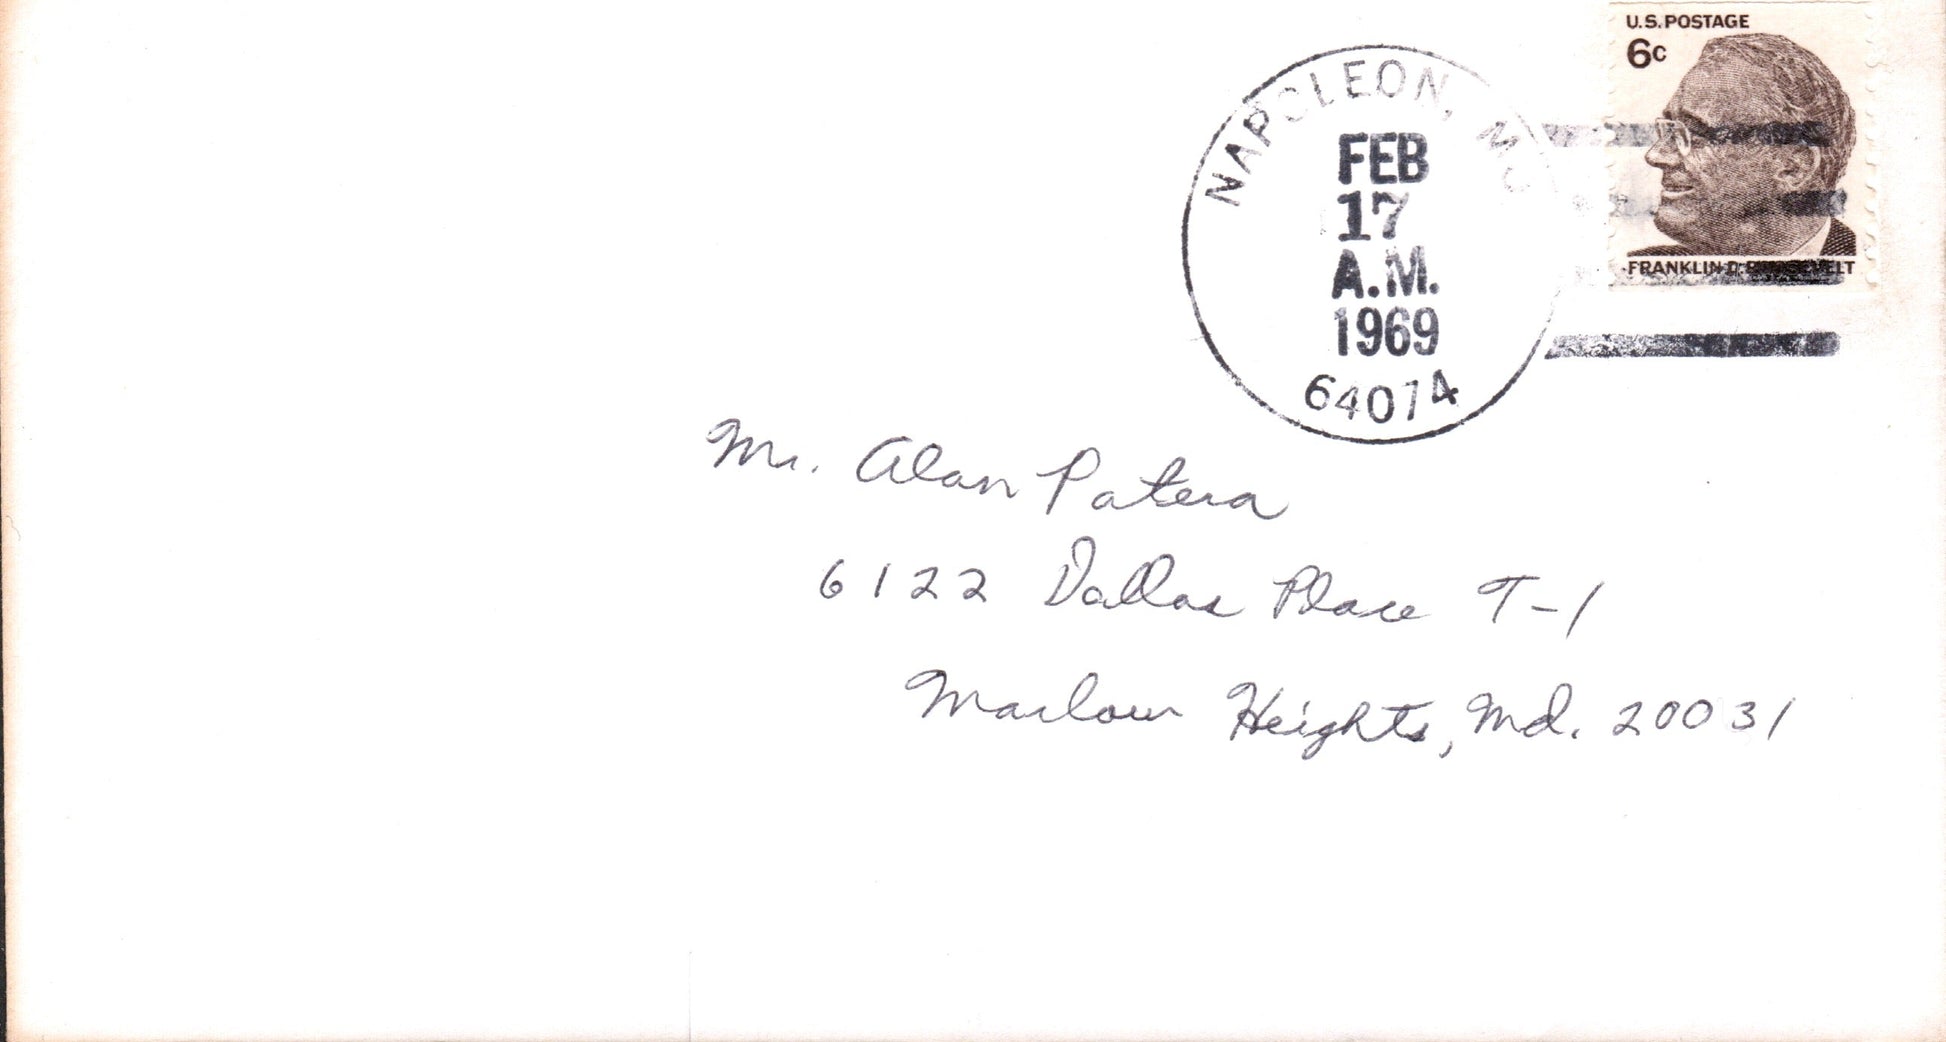 U.S. POSTAGE
6c
FRANKLIN D. ROOSEVELT
NAPOLEON, MO
FEB
17
A.M.
1969
64074
Mr. Alan Patera
6122 Dallas Place T-1
Marlow Heights, Md. 20031